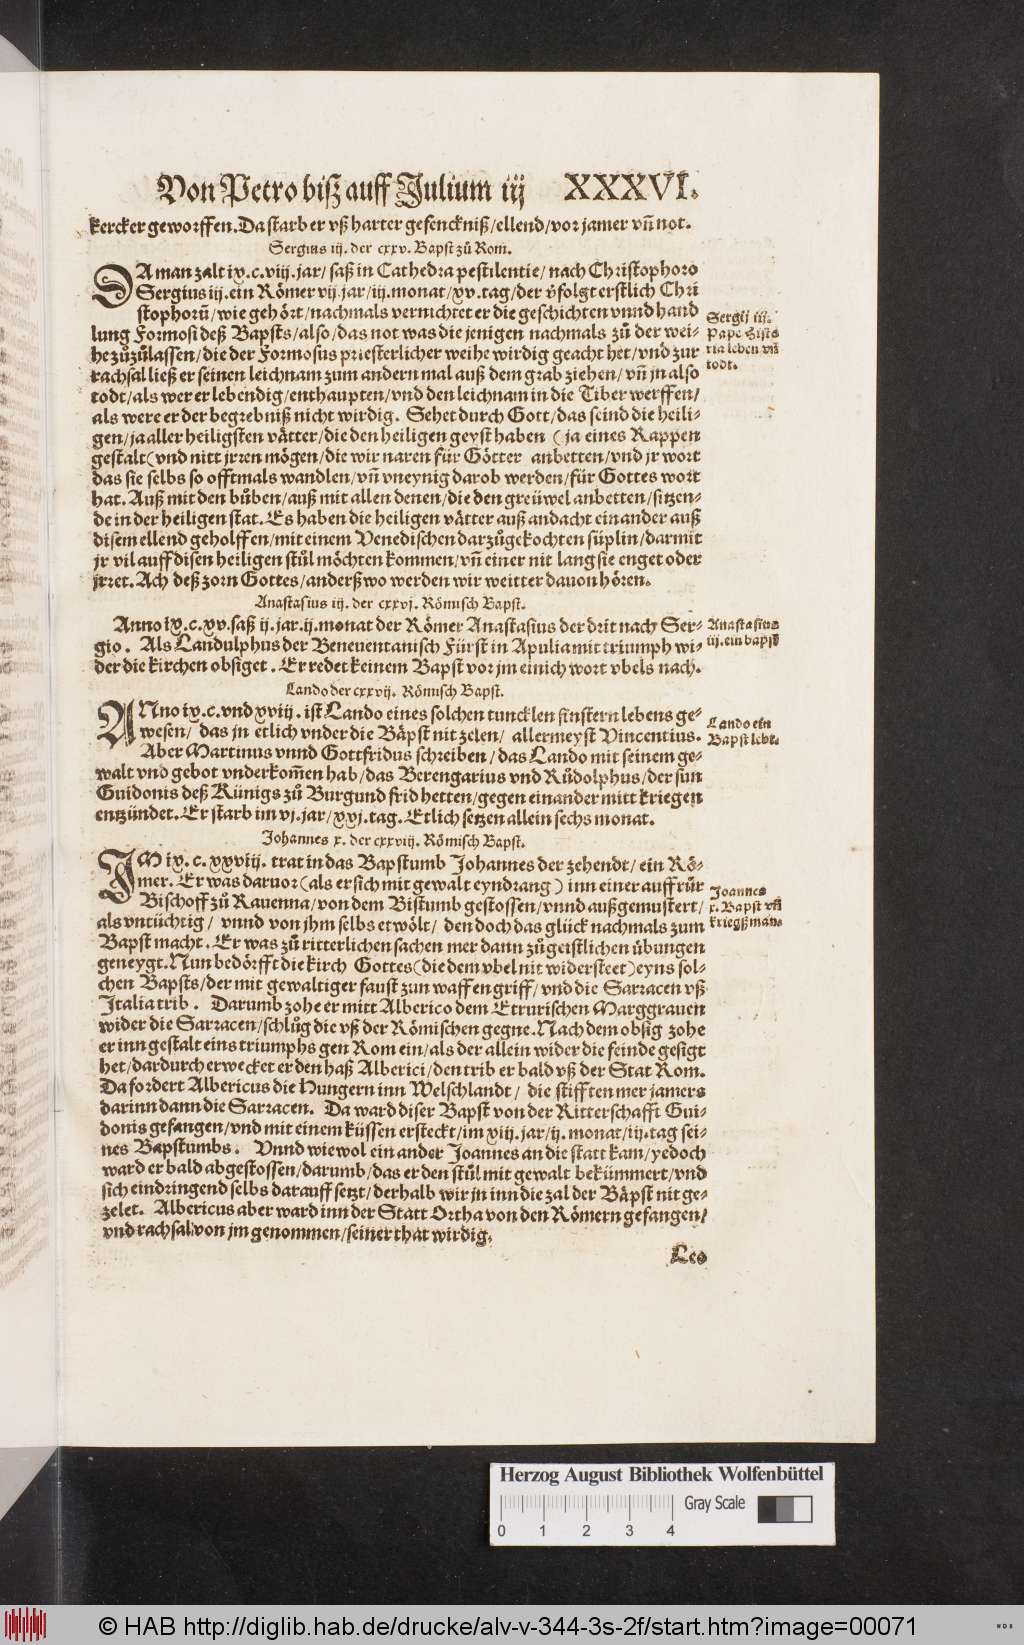 Von Petro biß auff Julium iij XXXVI.
kercker geworffen. Da starb er vß harter gefenckniß/ellend/vor jamer vñ not.
Sergius iij. der cxxv. Bapst zů Rom.
DA man zalt ix.c.viij.jar/ saß in Cathedra pestilentie/ nach Christophoro
Sergius iij. ein Römer vij.jar/iij.monat/xv.tag/der v̈folgt erstlich Chri
stophorū/wie gehört/nachmals vernichtet er die geschichten vnnd hand
lung Formosi deß Bapsts/also/das not was die jenigen nachmals zů der wei-
he zůzůlassen/die der Formosus priesterlicher weihe wirdig geacht het/vnd zur
rachsal ließ er seinen leichnam zum andern mal auß dem grab ziehen/vñ jn also
todt/als wer er lebendig/enthaupten/vnd den leichnam in die Tiber werffen/
als were er der begrebniß nicht wirdig. Sehet durch Gott/das seind die heili-
gen/ja aller heiligsten vätter/die den heiligen geyst haben (ja eines Rappen
gestalt(vnd nitt jrren mögen/die wir naren für Götter anbetten/vnd jr wort
das sie selbs so offtmals wandlen/vñ vneynig darob werden/für Gottes wort
hat. Auß mit den bůben/auß mit allen denen/die den greüwel anbetten/sitzen-
de in der heiligen stat. Es haben die heiligen vätter auß andacht ein ander auß
disem ellend geholffen/mit einem Venedischen darzůgekochten süplin/darmit
jr vil auff disen heiligen stůl möchten kommen/vñ einer nit lang sie enget oder
jrret. Ach deß zorn Gottes/anderßwo werden wir weitter dauon hören.
Sergij iij.
Pape Histo
ria leben vñ
todt.
Anastasius iij. der cxxvj. Römisch Bapst.
Anno ix.c.xv.saß ij.jar.ij.monat der Römer Anastasius der drit nach Ser-
gio. Als Landulphus der Beneuentanisch Fürst in Apulia mit triumph wi-
der die kirchen obsiget. Er redet keinem Bapst vor jm einich wort vbels nach.
Anastasius
iij.ein bapst
Lando der cxxvij. Römisch Bapst.
ANno ix.c.vnd xviij. ist Lando eines solchen tuncklen finstern lebens ge-
wesen/ das jn etlich vnder die Bäpst nit zelen/ allermeyst Vincentius.
Aber Martinus vnnd Gottfridus schreiben/das Lando mit seinem ge-
walt vnd gebot vnderkom̄en hab/das Berengarius vnd Růdolphus/der sun
Guidonis deß Künigs zů Burgund frid hetten/gegen einander mitt kriegen
entzündet. Er starb im vj.jar/xxj.tag. Etlich setzen allein sechs monat.
Lando ein
Bapst lebt.
Johannes x. der cxxviij. Römisch Bapst.
IM ix.c.xxviij. trat in das Bapstumb Johannes der zehendt/ein Rö-
mer. Er was daruor (als er sich mit gewalt eyndrang) inn einer auffrůr
Bischoff zů Rauenna/von dem Bistumb gestossen/vnnd außgemustert/
als vntüchtig/ vnnd von jhm selbs etwölt/ den doch das glück nachmals zum
Bapst macht. Er was zů ritterlichen sachen mer dann zů geistlichen übungen
geneygt. Nun bedörfft die kirch Gottes (die dem vbel nit widersteet) eyns sol-
chen Bapsts/der mit gewaltiger faust zun waffen griff/vnd die Sarracen vß
Italia trib. Darumb zohe er mitt Alberico dem Etrurischen Marggrauen
wider die Sarracen/schlůg die vß der Römischen gegne. Nach dem obsig zohe
er inn gestalt eins triumphs gen Rom ein/als der allein wider die feinde gesigt
het/dardurch erwecket er den haß Alberici/den trib er bald vß der Stat Rom.
Da fordert Albericus die Hungern inn Welschlandt/ die stifften mer jamers
darinn dann die Sarracen. Da ward diser Bapst von der Ritterschafft Gui-
donis gefangen/vnd mit einem küssen ersteckt/im xiij.jar/ij.monat/iij.tag sei-
nes Bapstumbs. Vnnd wiewol ein ander Joannes an die statt kam/yedoch
ward er bald abgestossen/darumb/das er den stůl mit gewalt bekümmert/vnd
sich eindringend selbs darauff setzt/derhalb wir jn inn die zal der Bäpst nit ge-
zelet. Albericus aber ward inn der Statt Ortha von den Römern gefangen/
vnd rachsal von jm genommen/seiner that wirdig.
Joannes
x. Bapst vñ
kriegßman.
Leo
Herzog August Bibliothek Wolfenbüttel
Gray Scale
0 1 2 3 4
© HAB http://diglib.hab.de/drucke/alv-v-344-3s-2f/start.htm?image=00071